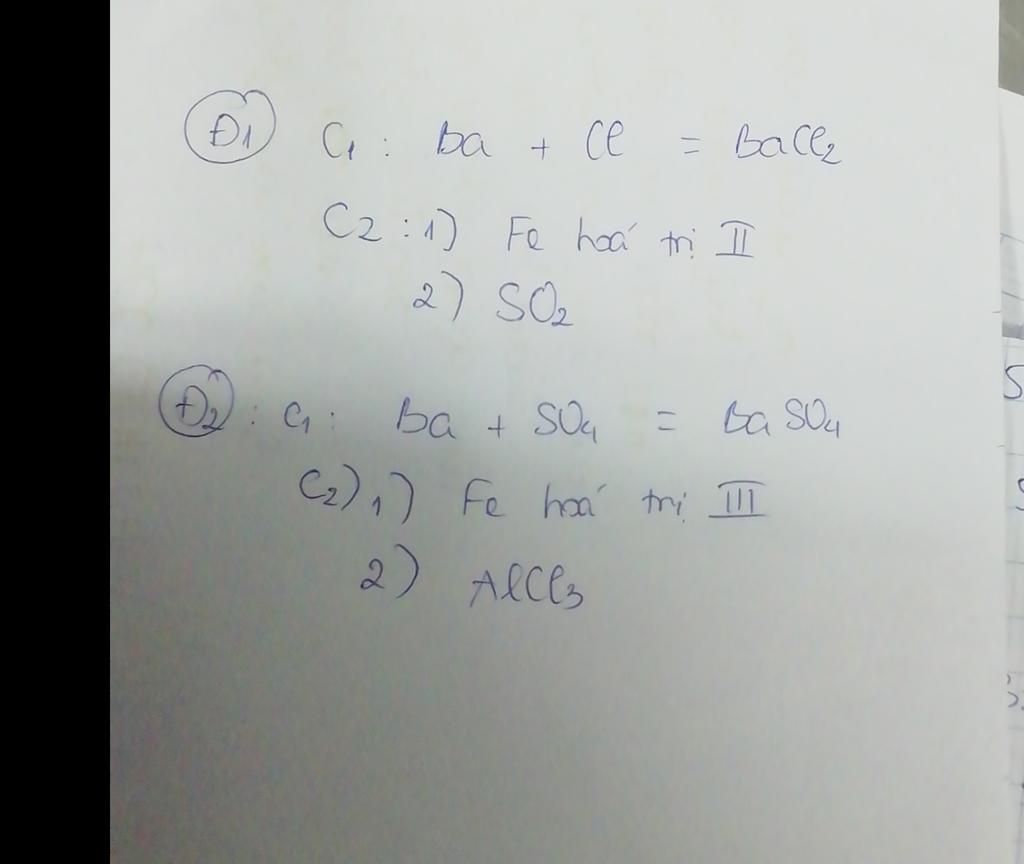 Đ1 C1 : Ba + Cl = BaCl2
C2 : 1) Fe hoá trị II
2) SO2
Đ2 : C1 : Ba + SO4 = BaSO4
C2) 1) Fe hoá trị III
2) AlCl3